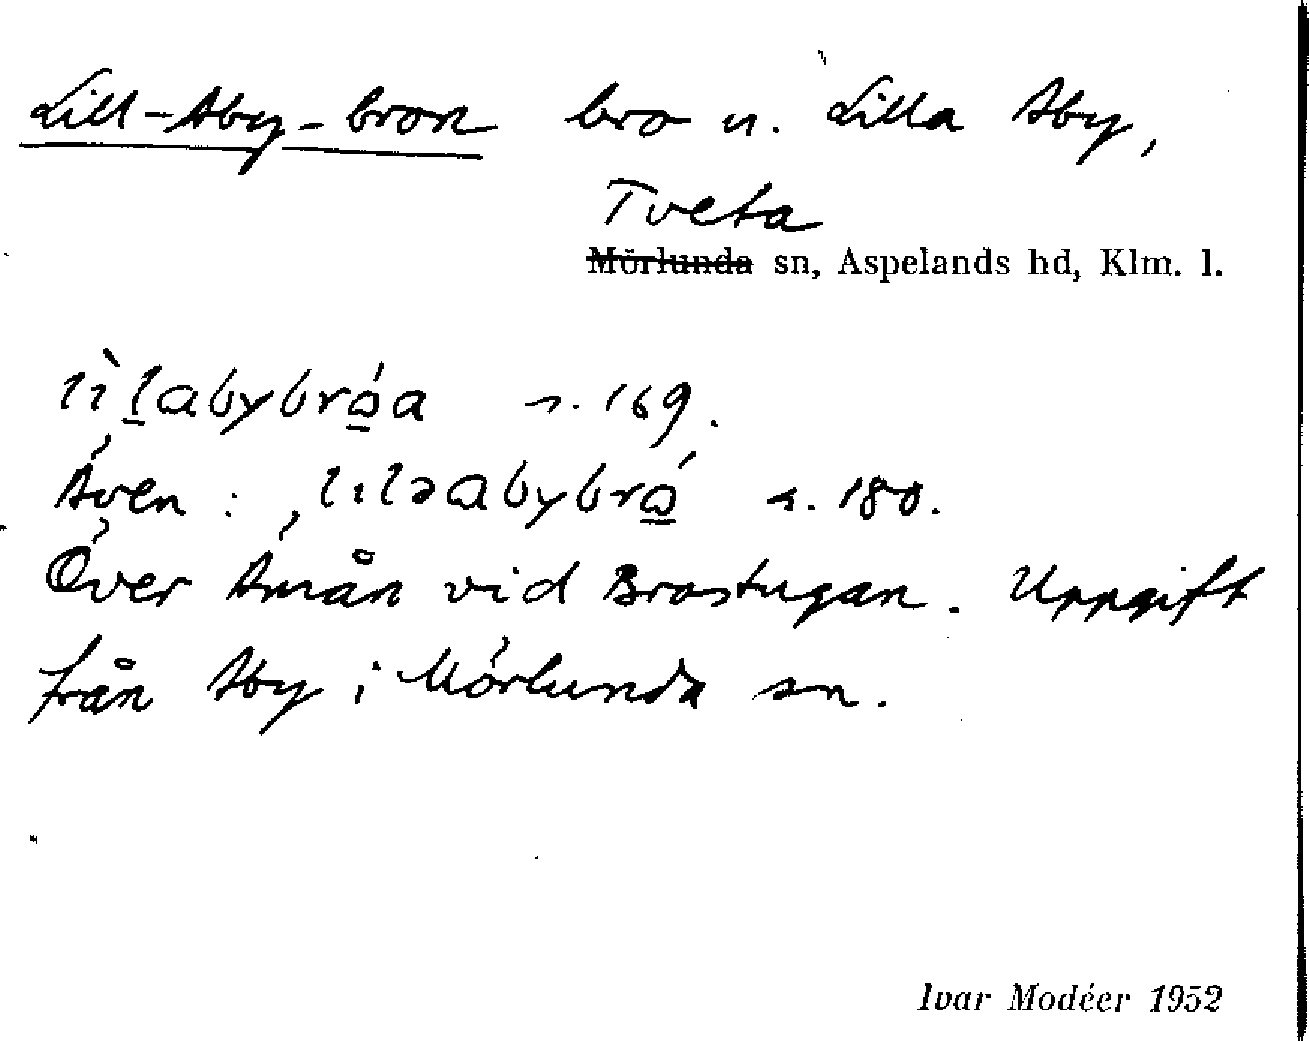 Lill-Aby-bron bro u. Lilla Aby,
Tveta
Mörlunda sn, Aspelands hd, Klm. l.
lìlabybróa s. 169.
Även: ,lıləabybró s. 180.
Över Ämån vid Brostugan. Uppgift
från Aby i Mörlunda sn.
Ivar Modéer 1952